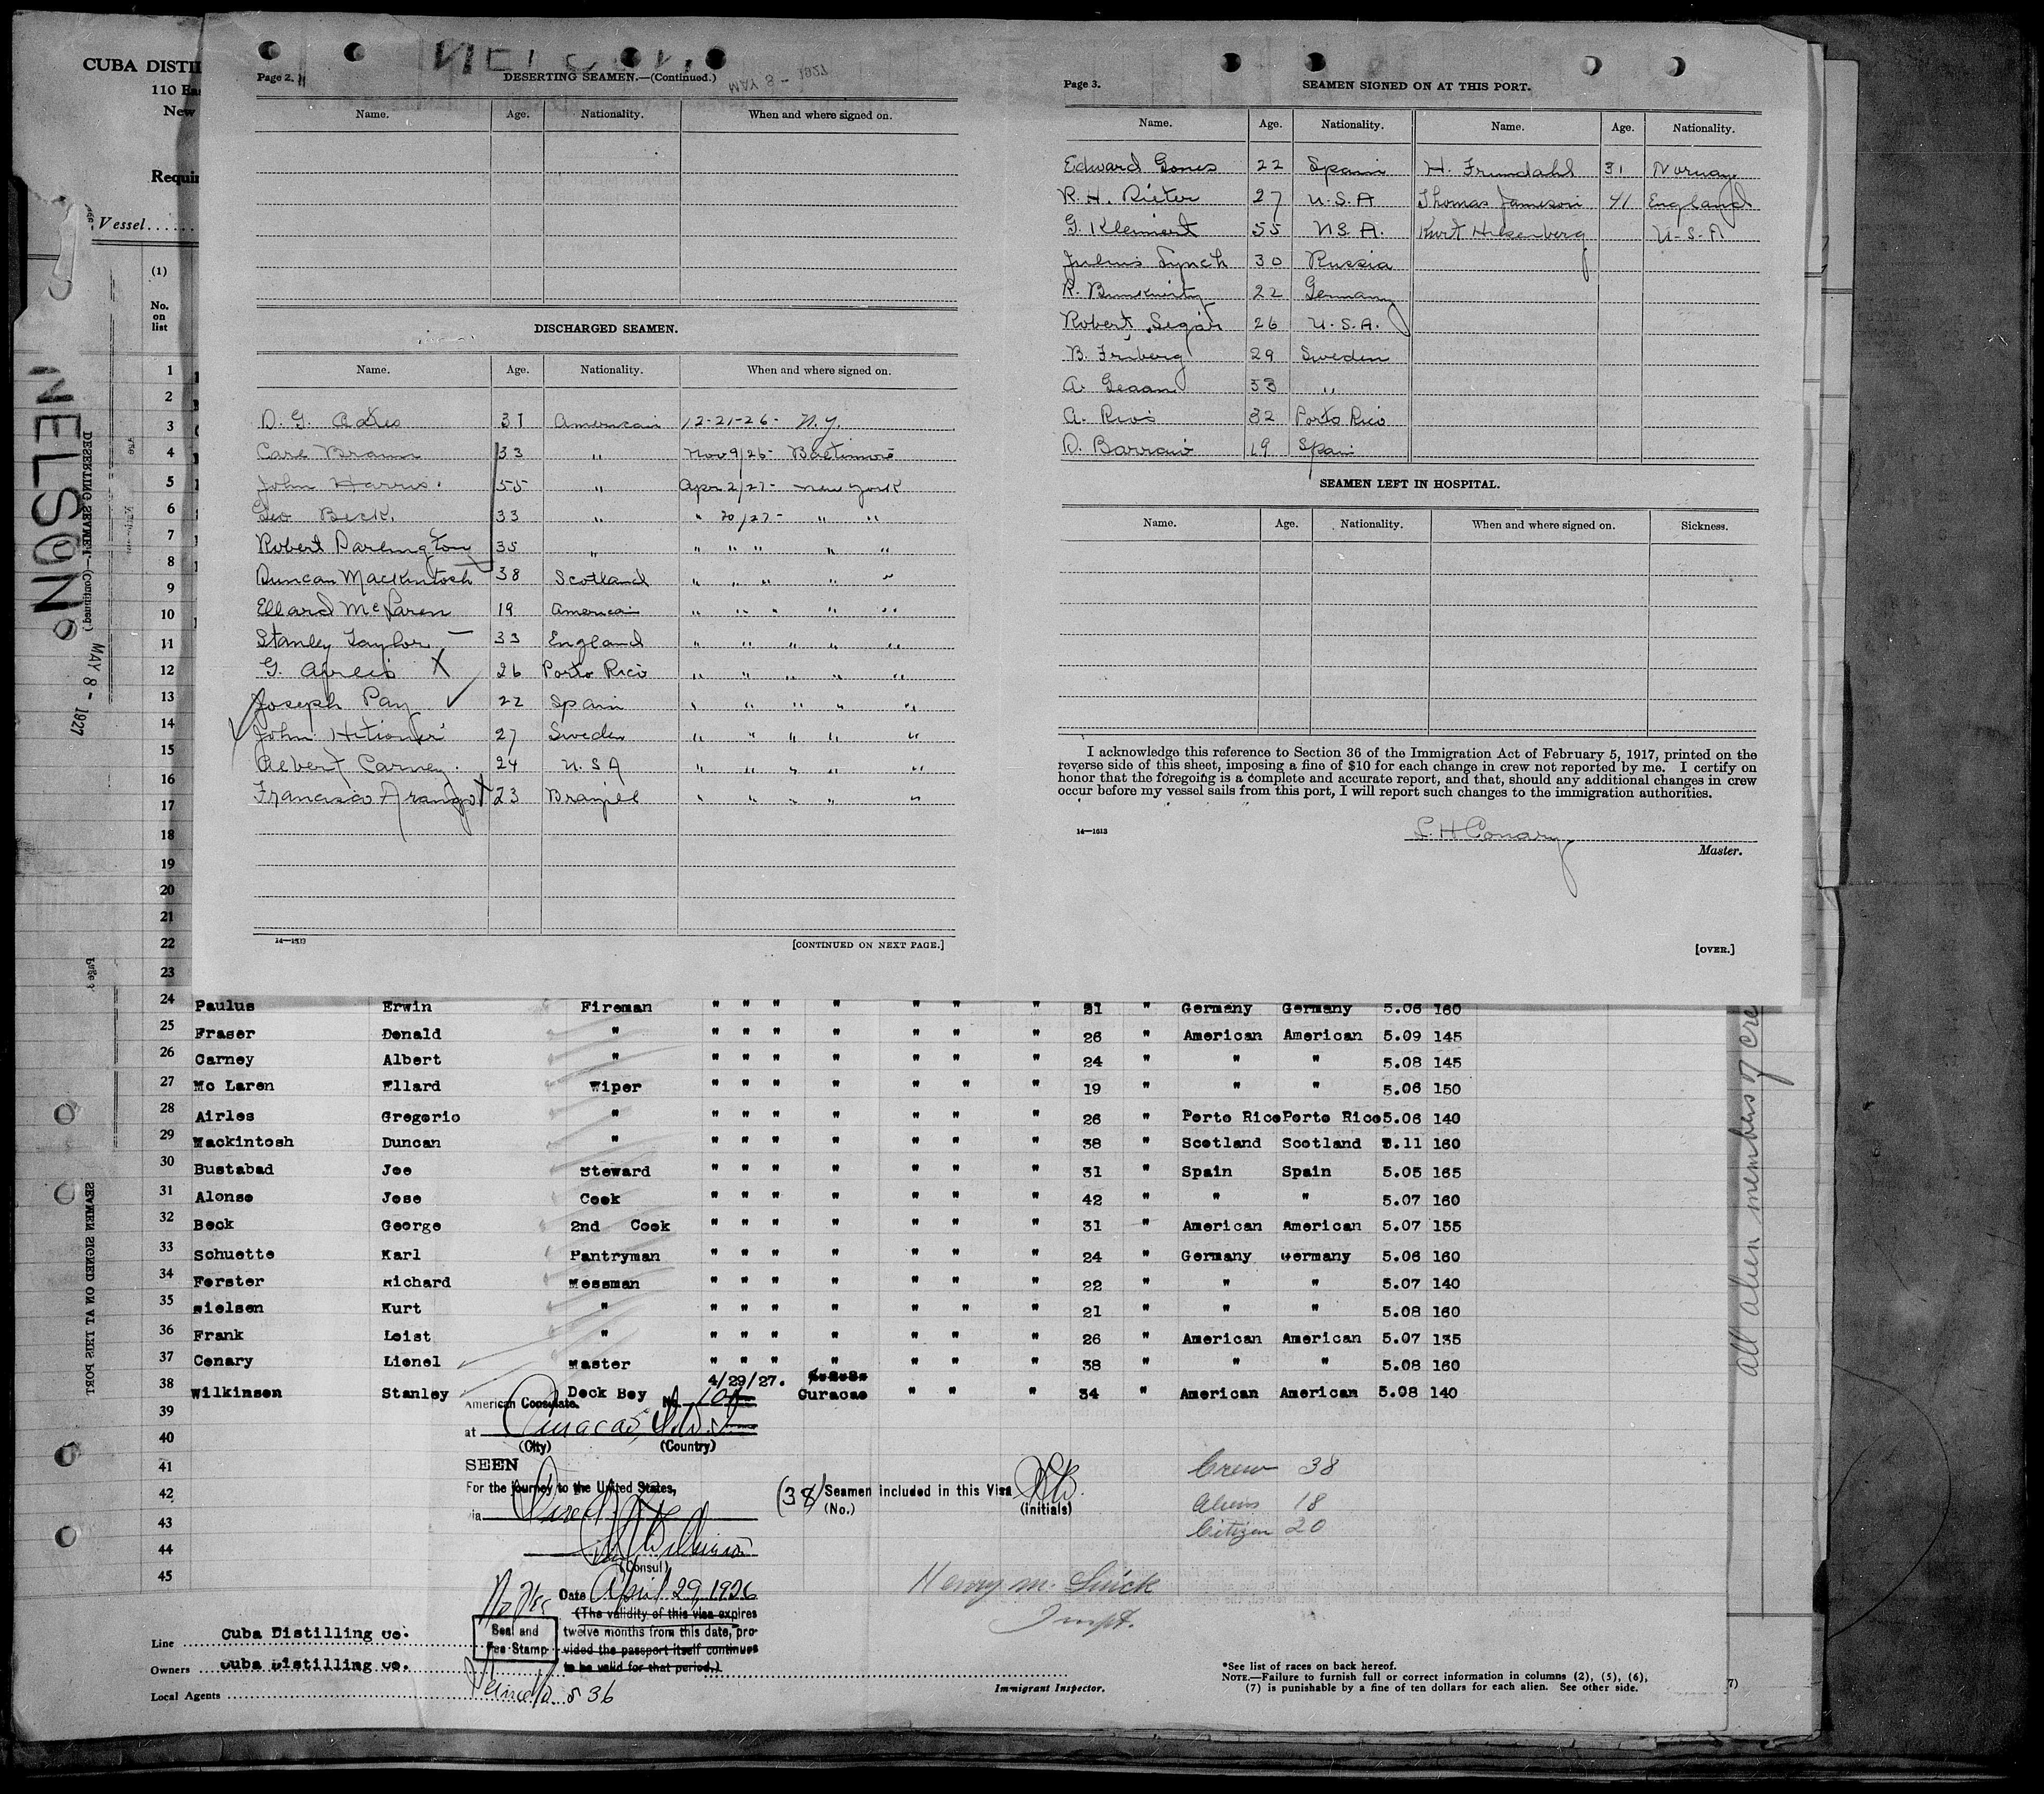 CUBA DISTI
110 Ea
New
Requir
Vessel
(1)
No. on list
NELSON
MAY 8 - 1927
Page 2.
DESERTING SEAMEN.—(Continued.)
MAY 8 - 1927
Name. Age. Nationality. When and where signed on.
DISCHARGED SEAMEN.
Name. Age. Nationality. When and where signed on.
D. G. 31 American 12-21-26- N.Y.
Carl Braun 33 " Nov 9/26- Baltimore
John Harris. 55 " Apr 2/27- New York
Geo Beck. 33 " " 20/27- " "
Robert Darlington 35 " " " " " "
Duncan Mackintosh 38 Scotland " " " " "
Ellard McLaren 19 American " " " " "
Stanley Taylor — 33 England " " " " "
G. X 26 Porto Rico " " " " "
Joseph Pay ✓ 22 Spain " " " " "
✓ John 27 Sweden " " " " "
Albert Carney. 24 U.S.A " " " " "
Francisco Arango X 23 Brazil " " " " "
14—1613
[CONTINUED ON NEXT PAGE.]
Page 3.
SEAMEN SIGNED ON AT THIS PORT.
Name. Age. Nationality. Name. Age. Nationality.
Edward Gomes 22 Spain H. Frundahl 31 Norway
R. H. Rieter 27 U.S.A Thomas Jameson 41 England
G. Kleinert 55 U.S.A. Kurt U-S-A
Julius Lynch 30 Russia
R. 22 Germany
Robert Segar 26 U.S.A.
B. Friberg 29 Sweden
A. 53 "
A. Rios 32 Porto Rico
D. 19 Spain
SEAMEN LEFT IN HOSPITAL.
Name. Age. Nationality. When and where signed on. Sickness.
I acknowledge this reference to Section 36 of the Immigration Act of February 5, 1917, printed on the
reverse side of this sheet, imposing a fine of $10 for each change in crew not reported by me. I certify on
honor that the foregoing is a complete and accurate report, and that, should any additional changes in crew
occur before my vessel sails from this port, I will report such changes to the immigration authorities.
14—1613
L. H Conary
Master.
[OVER.]
1
2
3
4
5
6
7
8
9
10
11
12
13
14
15
16
17
18
19
20
21
22
23
24 Paulus Erwin Fireman " " " " " " " 31 " Germany Germany 5.06 160
25 Fraser Donald " " " " " " " " 26 " American American 5.09 145
26 Carney Albert " " " " " " " " 24 " " " 5.08 145
27 Mc Laren Ellard Wiper " " " " " " " 19 " " " 5.06 150
28 Airles Gregorio " " " " " " " " 26 " Porto Rico Porto Rico 5.06 140
29 Mackintosh Duncan " " " " " " " " 38 " Scotland Scotland 5.11 160
30 Bustabad Joe Steward " " " " " " " 31 " Spain Spain 5.05 165
31 Alonso Jose Cook " " " " " " " 42 " " " 5.07 160
32 Beck George 2nd Cook " " " " " " " 31 " American American 5.07 155
33 Schuette Karl Pantryman " " " " " " " 24 " Germany Germany 5.06 160
34 Forster Richard Messman " " " " " " " 22 " " " 5.07 140
35 Nielsen Kurt " " " " " " " " 21 " " " 5.08 160
36 Frank Leist " " " " " " " " 26 " American American 5.07 135
37 Conary Lionel Master " " " " " " " 38 " " " 5.08 160
38 Wilkinson Stanley Deck Boy 4/29/27. Curacao " " " 34 " American American 5.08 140
39
40
41
42
43
44
45
American Consulate. No. 104
at Curacao, D.W.I.
(City) (Country)
SEEN
For the journey to the United States,
via Direct
(Consul)
No Fee
Date April 29, 1926
(The validity of this visa expires
twelve months from this date, pro-
vided the passport itself continues
to be valid for that period.)
Seal and
Fee Stamp
(38) Seamen included in this Visa
(No.) (initials)
Crew 38
Aliens 18
Citizen 20
Henry M. Quick
Inspt.
Line Cuba Distilling Co.
Owners Cuba Distilling Co.
Local Agents
536
Immigrant Inspector.
*See list of races on back hereof.
NOTE.—Failure to furnish full or correct information in columns (2), (5), (6),
(7) is punishable by a fine of ten dollars for each alien. See other side.
7)
all alien members of cre
DESERTING SEAMEN.—(Continued.)
Page 3.
SEAMEN SIGNED ON AT THIS PORT